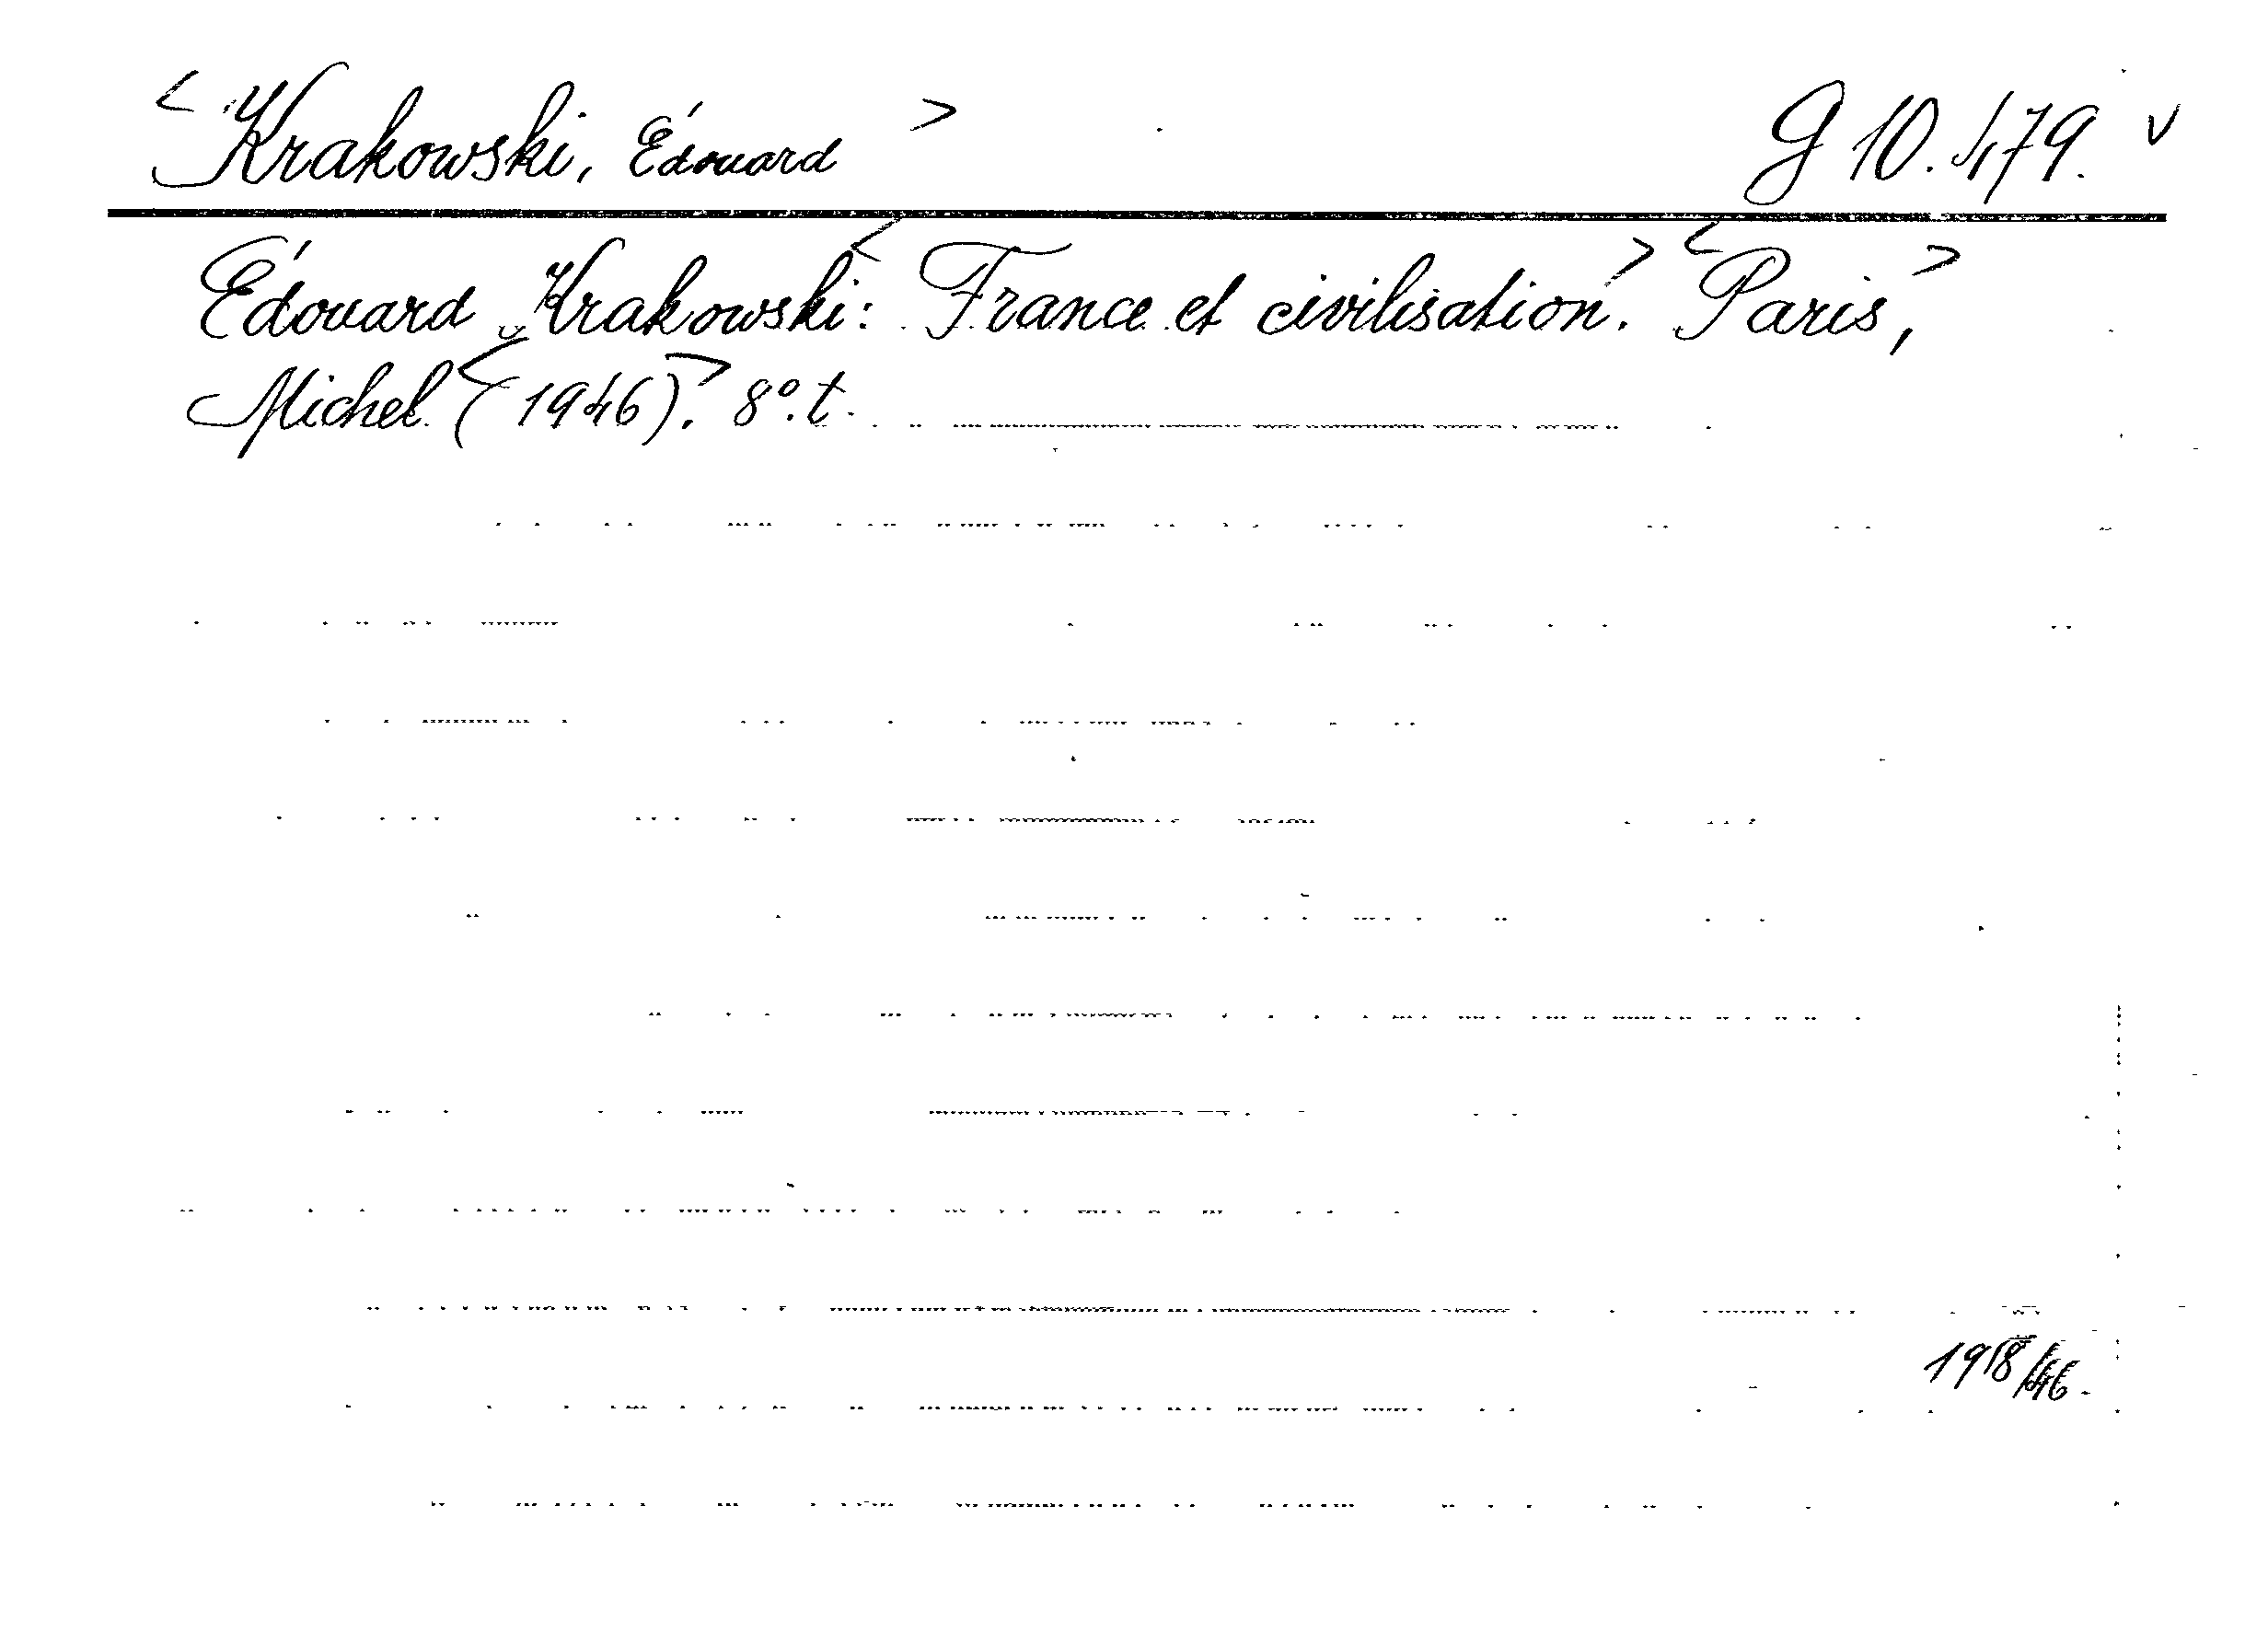 < Krakowski, Édouard > G 10.479. v
Édouard Krakowski: <France et civilisation.> <Paris,>
Michel <(1946).> 8°. t.